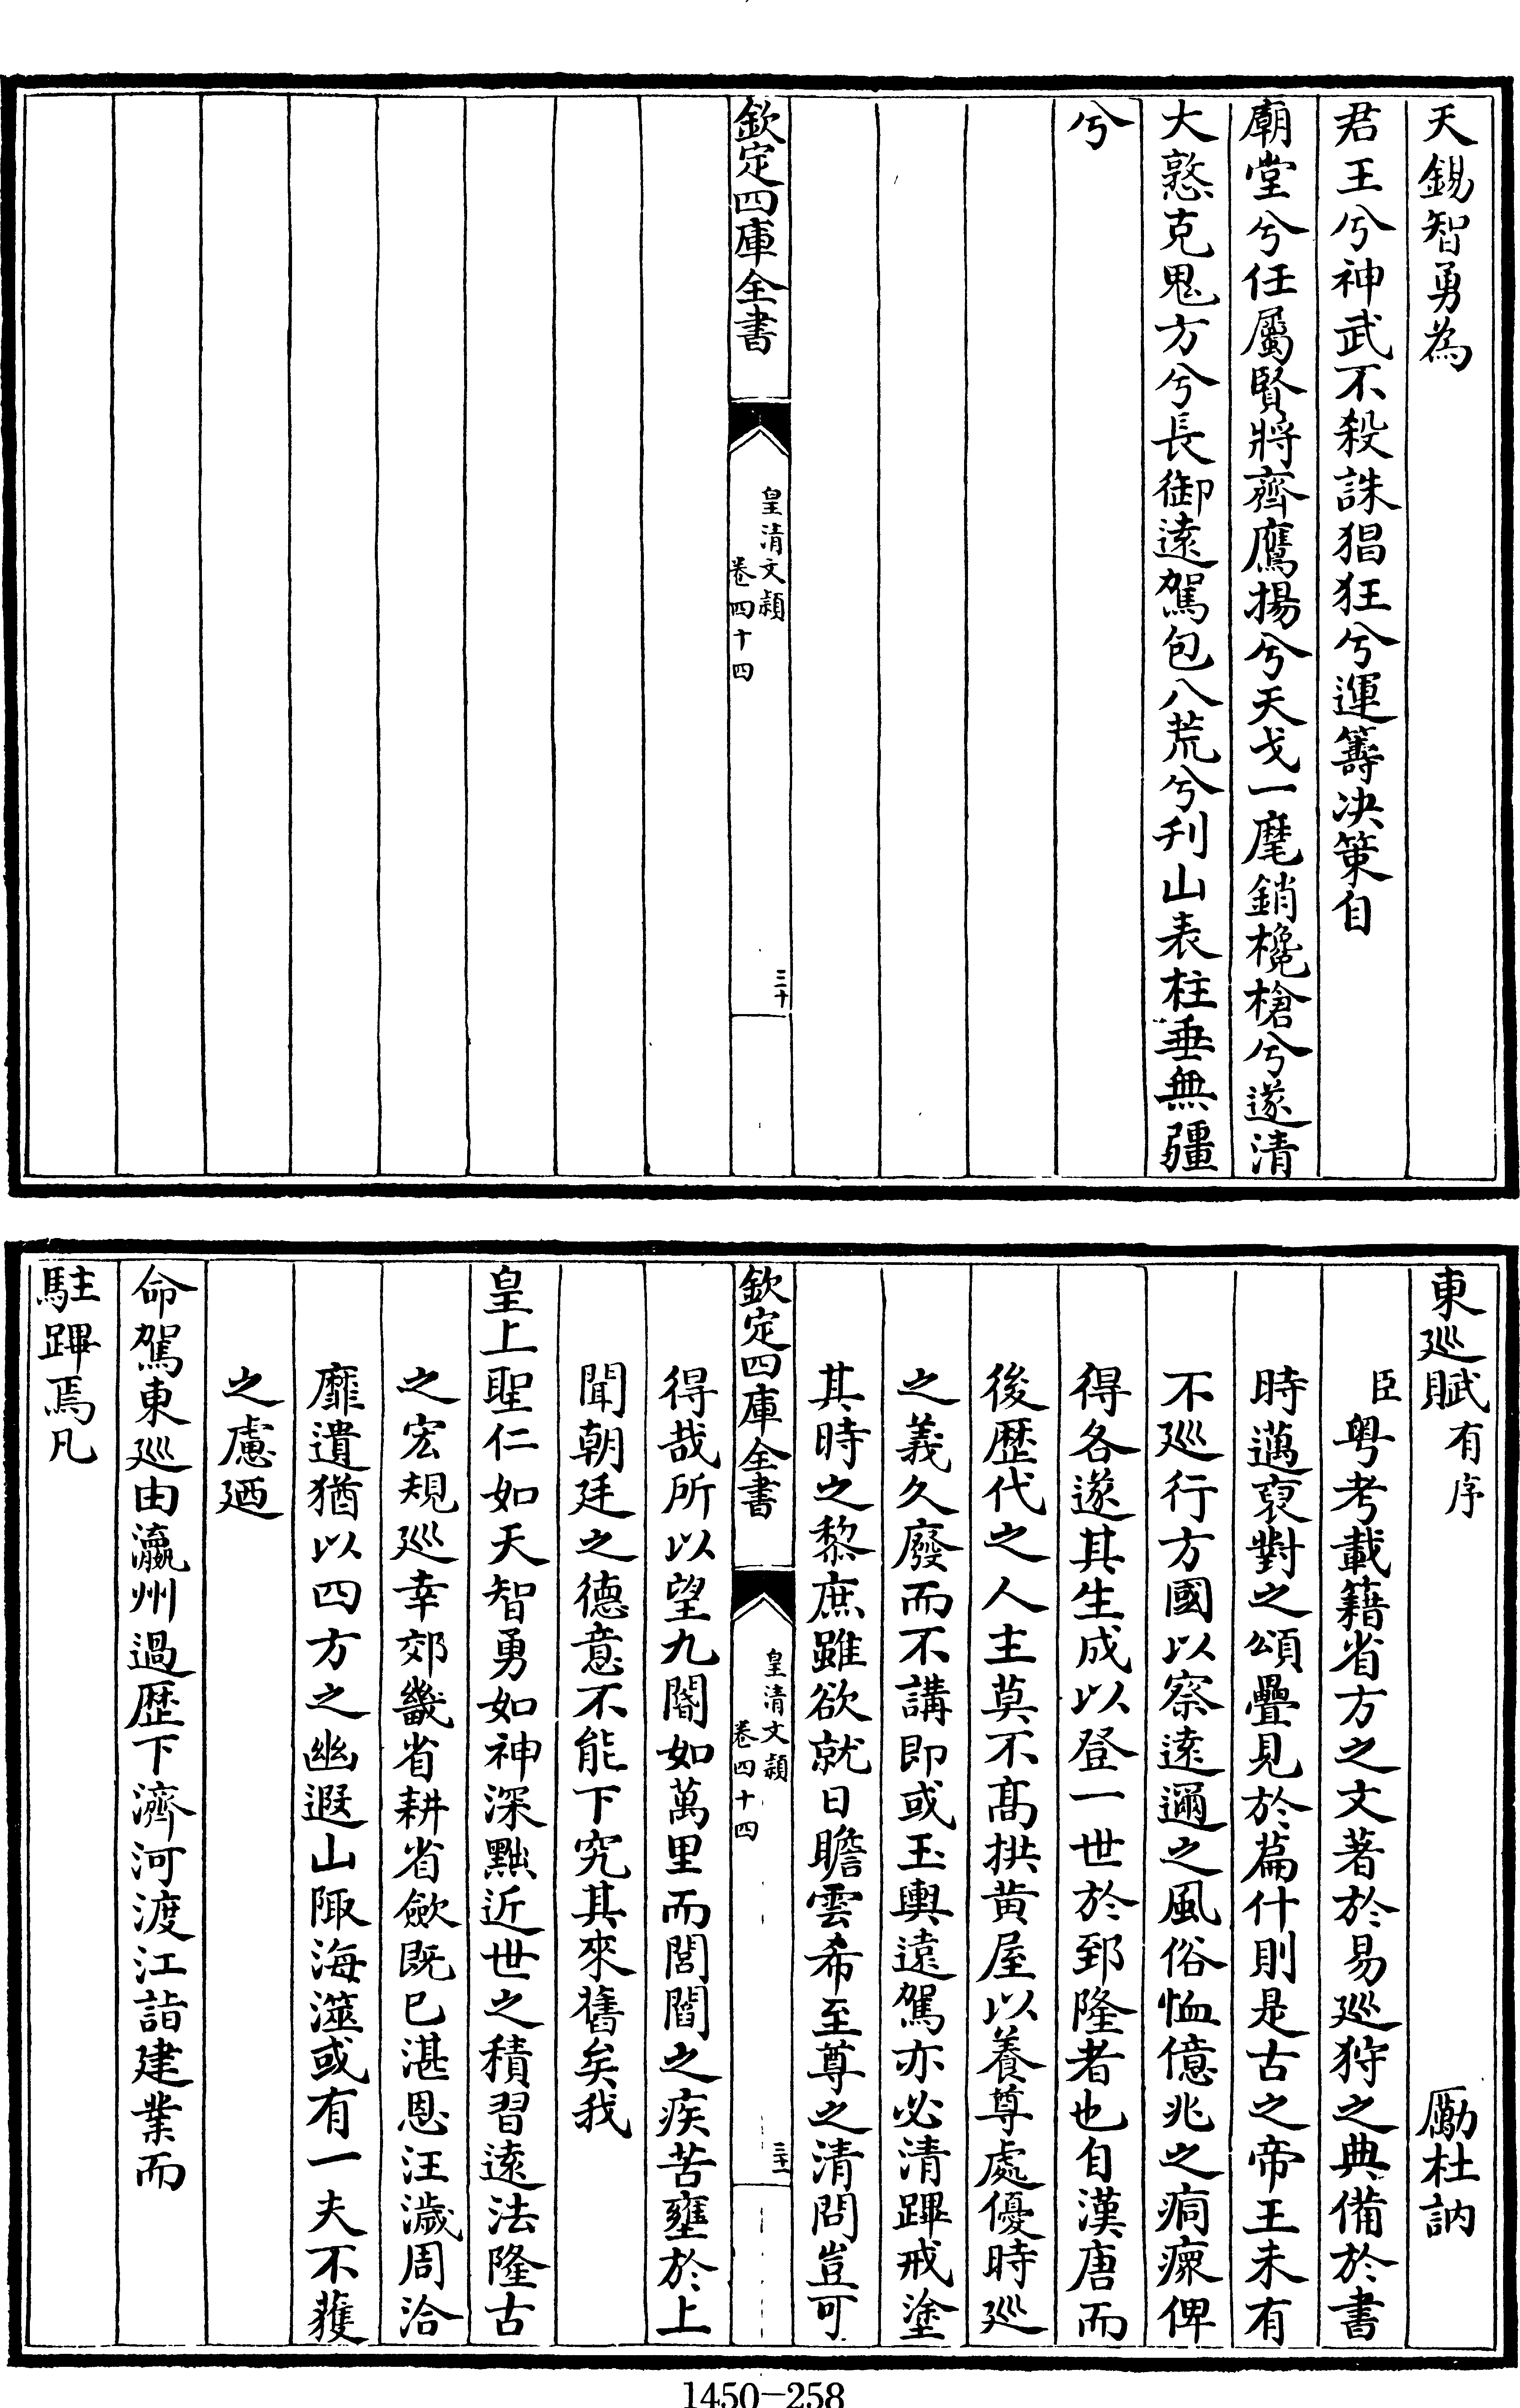 天錫智勇為
君王兮神武不殺誅猖狂兮運籌决策自
廟堂兮任屬賢將齊鷹揚兮天戈一麾銷欃槍兮遂清
大憝克鬼方兮長御遠駕包八荒兮刋山表柱垂無疆
兮
欽定四庫全書
皇清文穎
卷四十四
三十
東廵賦有序
勵杜訥
臣粤考載籍省方之文著於易廵狩之典備於書
時邁裒對之頌疊見於篇什則是古之帝王未有
不廵行方國以察逺邇之風俗恤億兆之痌瘝俾
得各遂其生成以登一世於郅隆者也自漢唐而
後歴代之人主莫不髙拱黄屋以養尊處優時廵
之義久廢而不講即或玉輿遠駕亦必清蹕戒塗
其時之黎庶雖欲就日瞻雲希至尊之清問豈可
欽定四庫全書
皇清文穎
卷四十四
三十一
得哉所以望九閽如萬里而閭閻之疾苦壅於上
聞朝廷之德意不能下究其來舊矣我
皇上聖仁如天智勇如神深黜近世之積習遠法隆古
之宏規廵幸郊畿省耕省歛既已湛恩汪濊周洽
靡遺猶以四方之幽遐山陬海澨或有一夫不獲
之慮廼
命駕東廵由瀛州過歴下濟河渡江詣建業而
駐蹕焉凡
1450-258